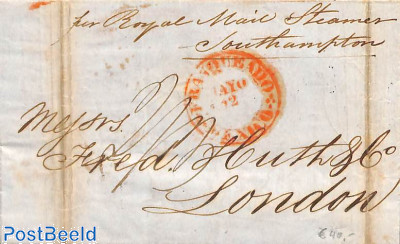 per Royal Mail Steamer
Southampton
FRANQUEADO
MAYO
12
Messrs.
Fred. Huth & Co
London
€40,-
PostBeeld